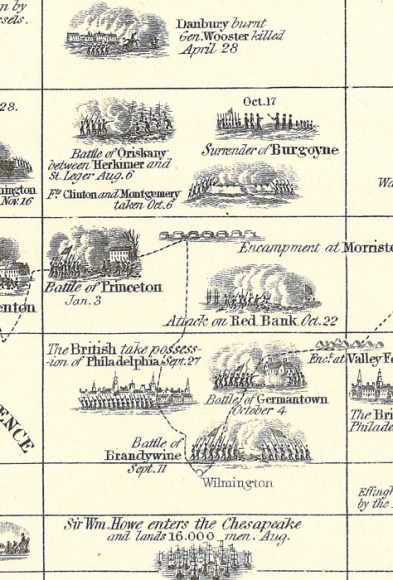 n by
sels.
Danbury burnt
Gen. Wooster killed
April 28
28.
Oct. 17
Battle of Oriskany
between Herkimer and
St. Leger Aug. 6
Surrender of Burgoyne
Fts. Clinton and Montgomery
taken Oct. 6
mington
Nov. 16
Wa
Encampment at Morristo
enton
Battle of Princeton
Jan. 3
Attack on Red Bank Oct. 22
The British take possess-
-ion of Philadelphia Sept. 27
Enct. at Valley Fo
Battle of Germantown
October 4
The Bri
Philade
ENCE
Battle of
Brandywine
Sept. 11
Wilmington
Effingh
by the
Sir Wm. Howe enters the Chesapeake
and lands 16.000 men. Aug.